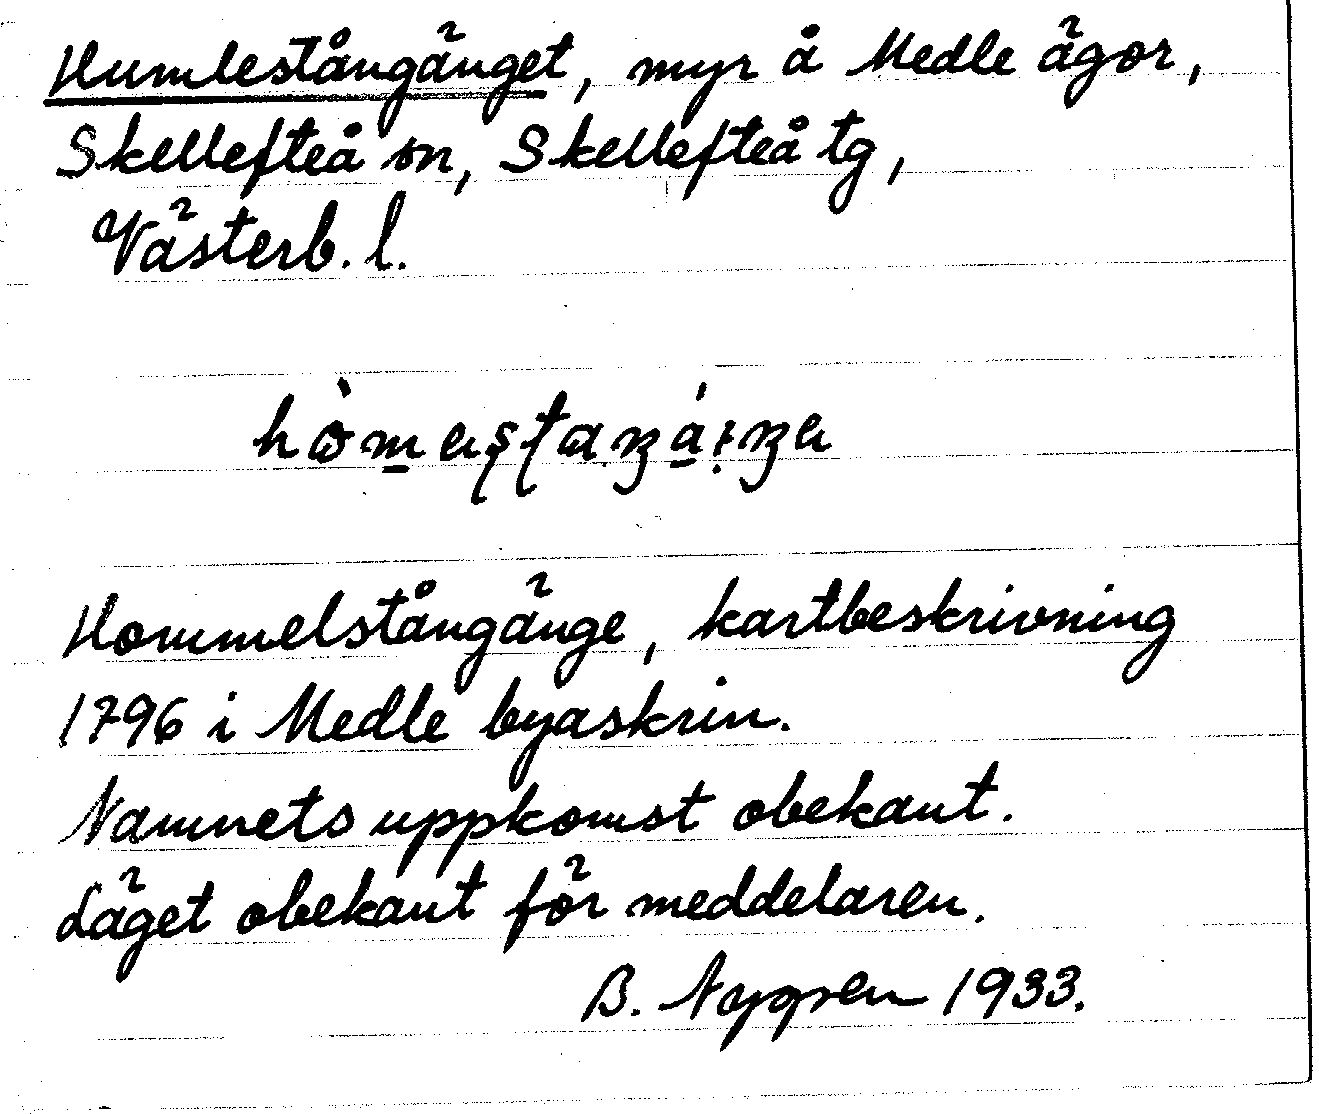 Humlestångänget, myr å Medle ägor,
Skellefteå sn, Skellefteå tg,
Västerb. l.
Hommelstångänge, kartbeskrivning
1796 i Medle byaskrin.
Namnets uppkomst obekant.
Läget obekant för meddelaren.
B. 1933.